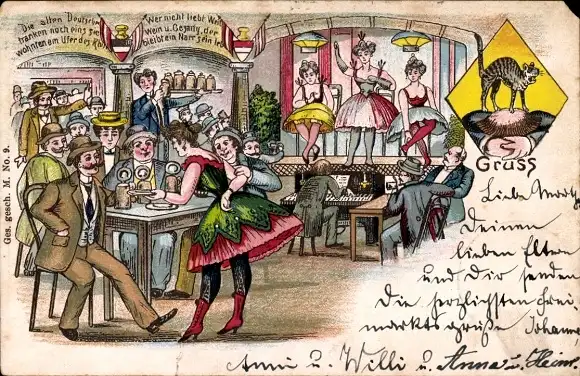 Die alten Deutschen
tranken noch eins
wohnten am Ufer des Rhe
Wer nicht liebt Wein
Wein u. Gesang, der
bleibt ein Narr sein le
Ges. gesch. M. No. 9.
Gruss
Liebe
Deinen
lieben Eltern
und Dir senden
die herzlichsten Frei
marktsgrüße Johanne,
Anni u. Willi u. Anna u. Heinr.